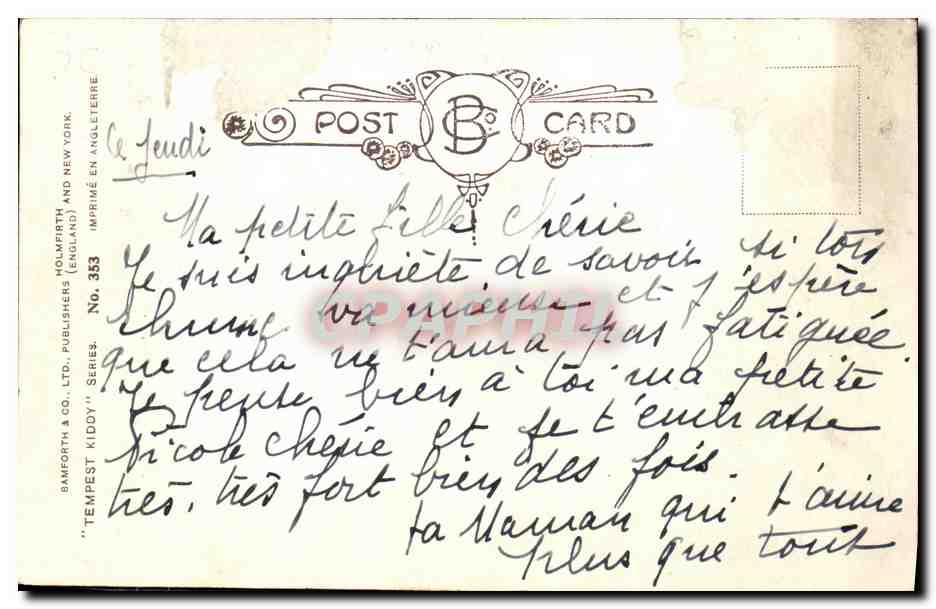 BAMFORTH & CO., LTD., PUBLISHERS HOLMFIRTH (ENGLAND) AND NEW YORK.
"TEMPEST KIDDY" SERIES. No. 353 IMPRIMÉ EN ANGLETERRE
POST B Co CARD
Le Jeudi
Ma petite fille chérie
Je suis inquiète de savoir si ton
rhume va mieux et j'espère
que cela ne t'aura pas fatiguée.
Je pense bien à toi ma petite
Nicole chérie et je t'embrasse
très, très fort bien des fois.
ta Maman qui t'aime
plus que tout
CPAPHIL